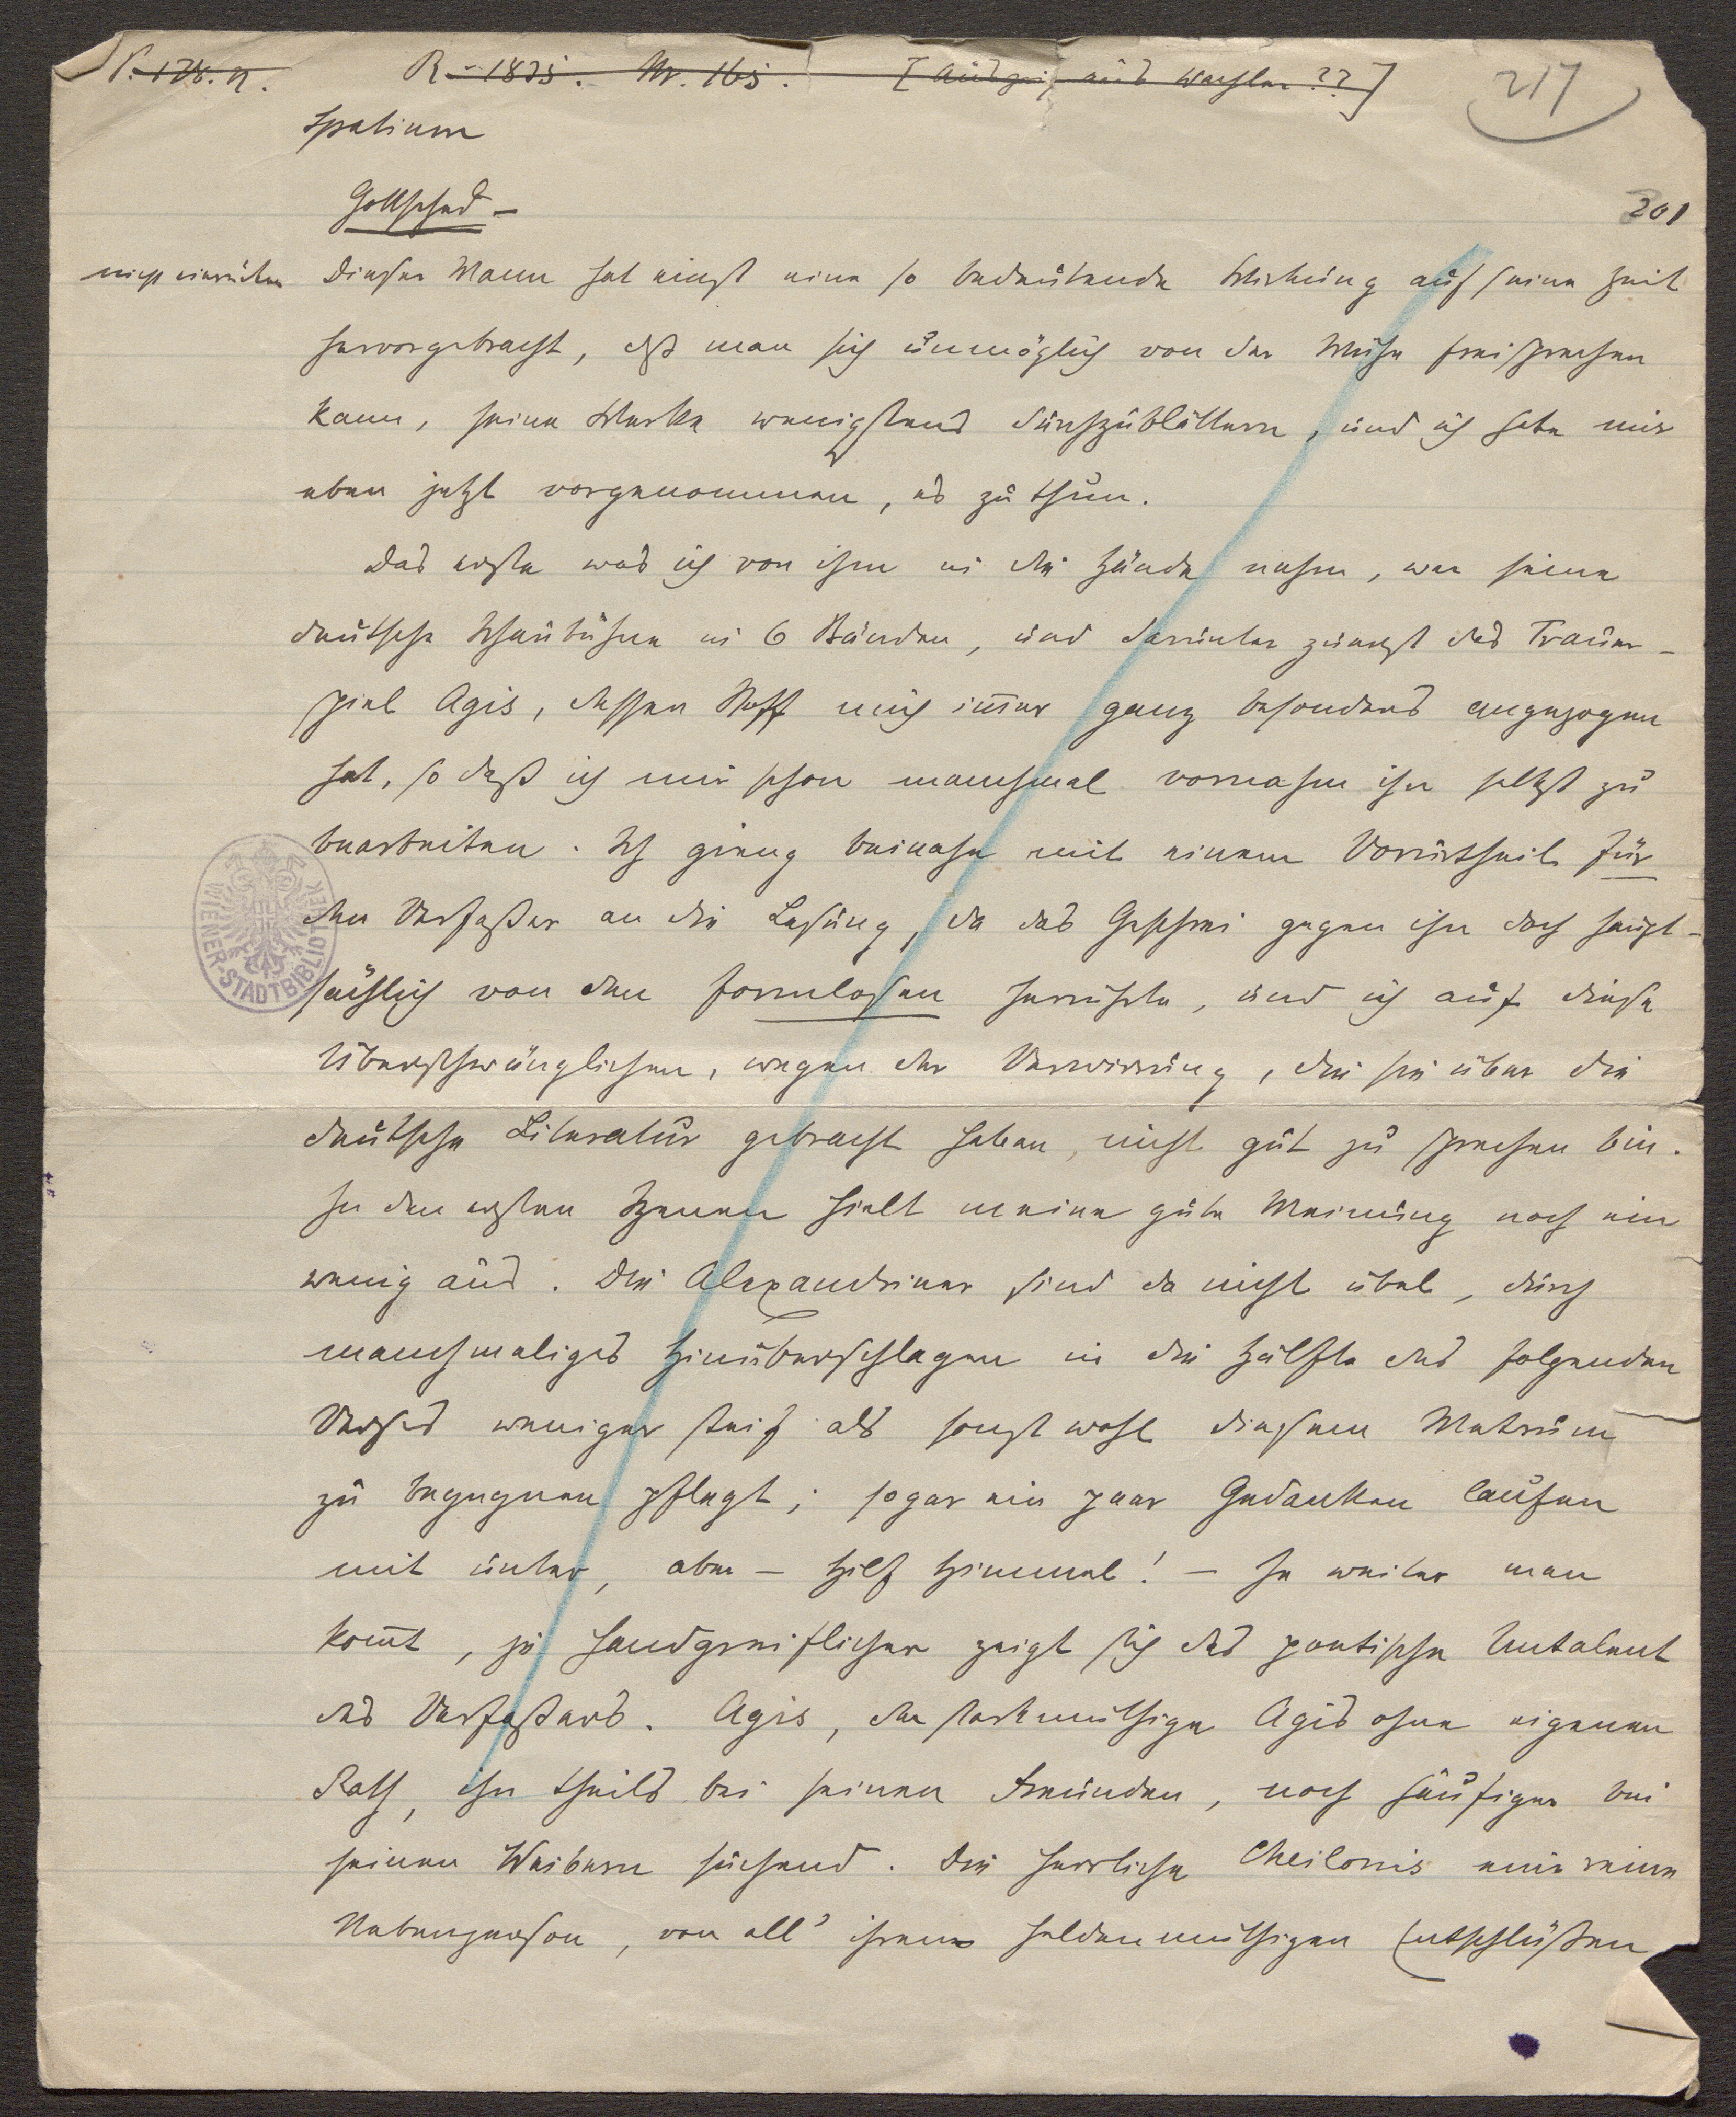 R. 1835. Nr. 165. [Auszug aus Wachler??] 217
Spatium
Gottsched –
201
nicht einrücken Dieser Mann hat einst eine so bedeutende Wirkung auf seine Zeit
hervorgebracht, daß man sich unmöglich von der Mühe freisprechen
kann, seine Werke wenigstens durchzublättern, und ich habe mir
eben jetzt vorgenommen, es zu thun.
Das erste was ich von ihm in die Hände nahm, war seine
deutsche Schaubühne in 6 Bänden, und darunter zuerst das Trauer-
spiel Agis, dessen Stoff mich im̅er ganz besonders angezogen
hat, so daß ich mir schon manchmal vornahm ihn selbst zu
bearbeiten. Ich gieng beinahe mit einem Vorurtheil für
den Verfaßer an die Lesung, da das Geschrei gegen ihn doch haupt-
sächlich von den formlosen herrührte, und ich auf diese
Überschwänglichen, wegen der Verwirrung, die sie über die
deutsche Literatur gebracht haben, nicht gut zu sprechen bin.
In den ersten Szenen hielt meine gute Meinung noch ein
wenig aus. Die Alexandriner sind da nicht übel, durch
manchmaliges Hinüberschlagen in die Hälfte des folgenden
Verses weniger steif als sonst wohl diesem Metrum
zu begegnen pflegt; sogar ein paar Gedanken laufen
mit unter, aber – Hilf Himmel! – Je weiter man
kom̅t, je handgreiflicher zeigt sich das poetische Untalent
des Verfaßers. Agis, der starkmüthige Agis ohne eigenen
Rath, ihn theils bei seinen Freunden, noch häufiger bei
seinen Weibern suchend. Die herrliche Cheilonis nur eine
Nebenperson, von all' ihren heldenmüthigen Entschlüßen
WIENER STADTBIBLIOTHEK